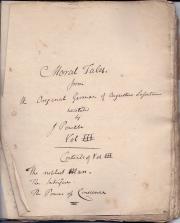 Moral Tales.
from
the Original German of Augustus Lafontaine
translated
by
J Powell
Vol III
Contents of Vol III
The noblest Man.
The
The Power of Conscience